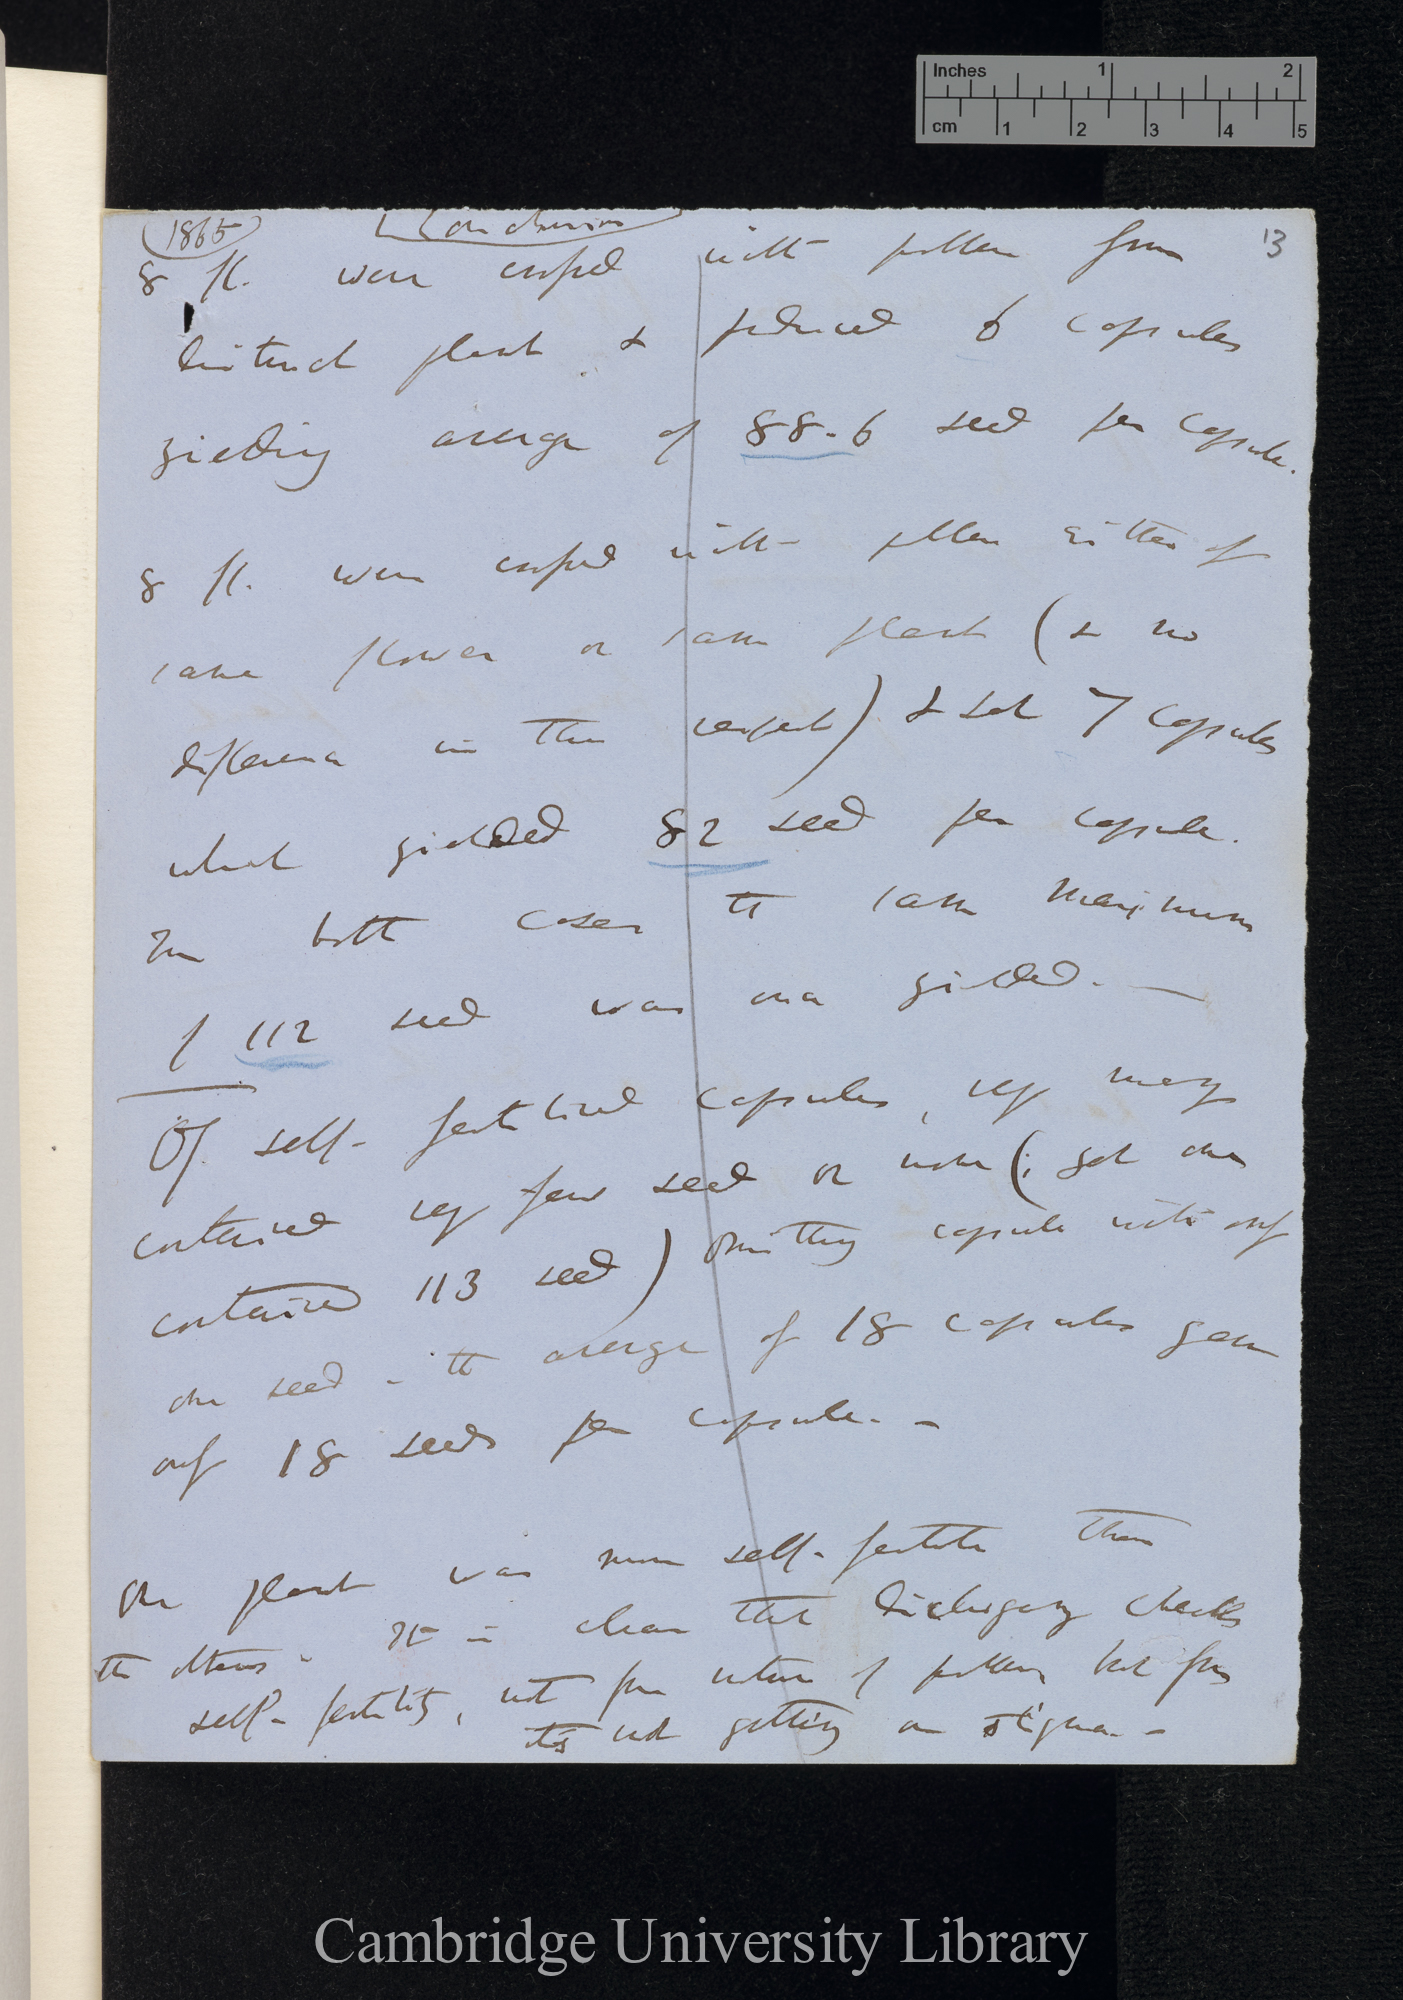 Inches 1 2
cm 1 2 3 4 5
1865 Conclusion 13
8 fl. were crossed with pollen from
distinct plant & produced 6 capsules
yielding average of 88.6 seed per capsule.
8 fl. were crossed with pollen either of
same flower or same plant (& no
difference in this respect) & set 7 capsules
which yielded 82 seed per capsule.
In both cases the same maximum
of 112 seed was once yielded. —
Of self-fertilised capsules, very many
contained very few seed or none (; got one
contained 113 seed) omitting capsule with only
one seed - the average of 18 capsules gave
only 18 seeds per capsule. —
One plant was more self-fertile than
the others. It is clear that Dichogamy checks
self-fertility, not from nature of pollen, but from
its not getting on stigma. —
Cambridge University Library